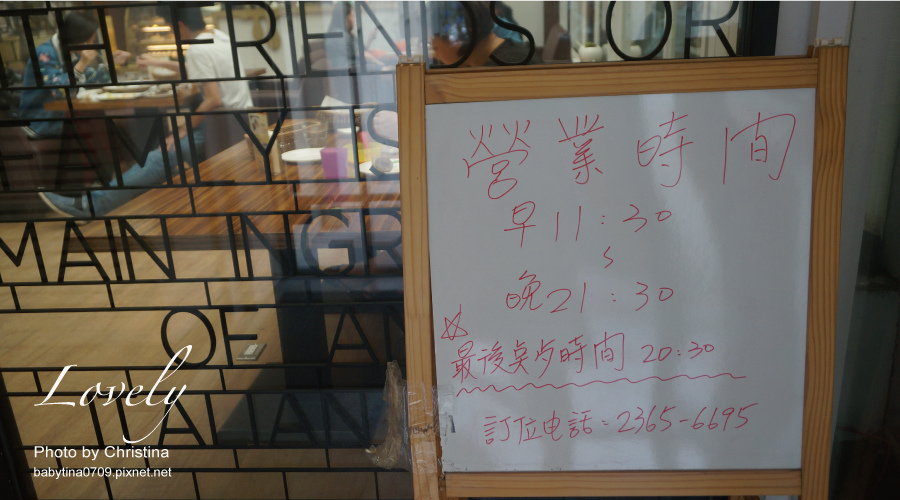 FRIENDS OR
FAMILY IS
MAIN INGR
OF AN
ITALIAN
營業時間
早11:30
晚21:30
最後奌歺時間 20:30
訂位电話:2365-6695
Lovely
Photo by Christina
babytina0709.pixnet.net